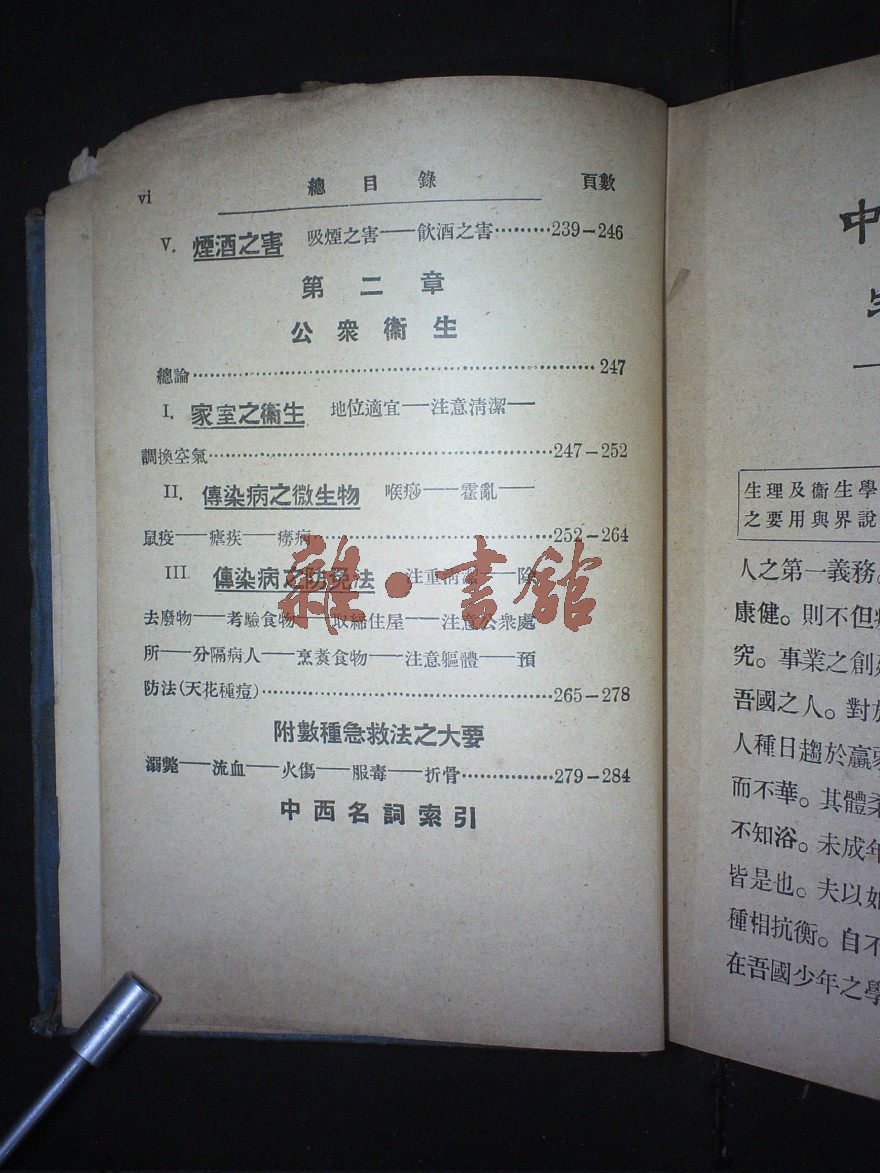 vi 總目錄 頁數
V. 煙酒之害 吸煙之害——飲酒之害………239—246
第二章
公衆衞生
總論………247
I. 家室之衞生 地位適宜——注意淸潔——
調換空氣………247—252
II. 傳染病之微生物 喉痧——霍亂——
鼠疫——瘧疾——癆病………252—264
III 傳染病之防免法 注重淸潔——除
去廢物——考驗食物——取締住屋——注意公衆處
所——分隔病人——烹煑食物——注意軀體——預
防法(天花種痘)………265—278
附數種急救法之大要
溺斃——流血——火傷——服毒——折骨………279—284
中西名詞索引
雜·書館
中
生理及衞生學
之要用與界說
人之第一義務。
康健。則不但
究。事業之創
吾國之人。對於
人種日趨於羸
而不華。其體柔
不知浴。未成年
皆是也。夫以如
種相抗衡。自不
在吾國少年之學